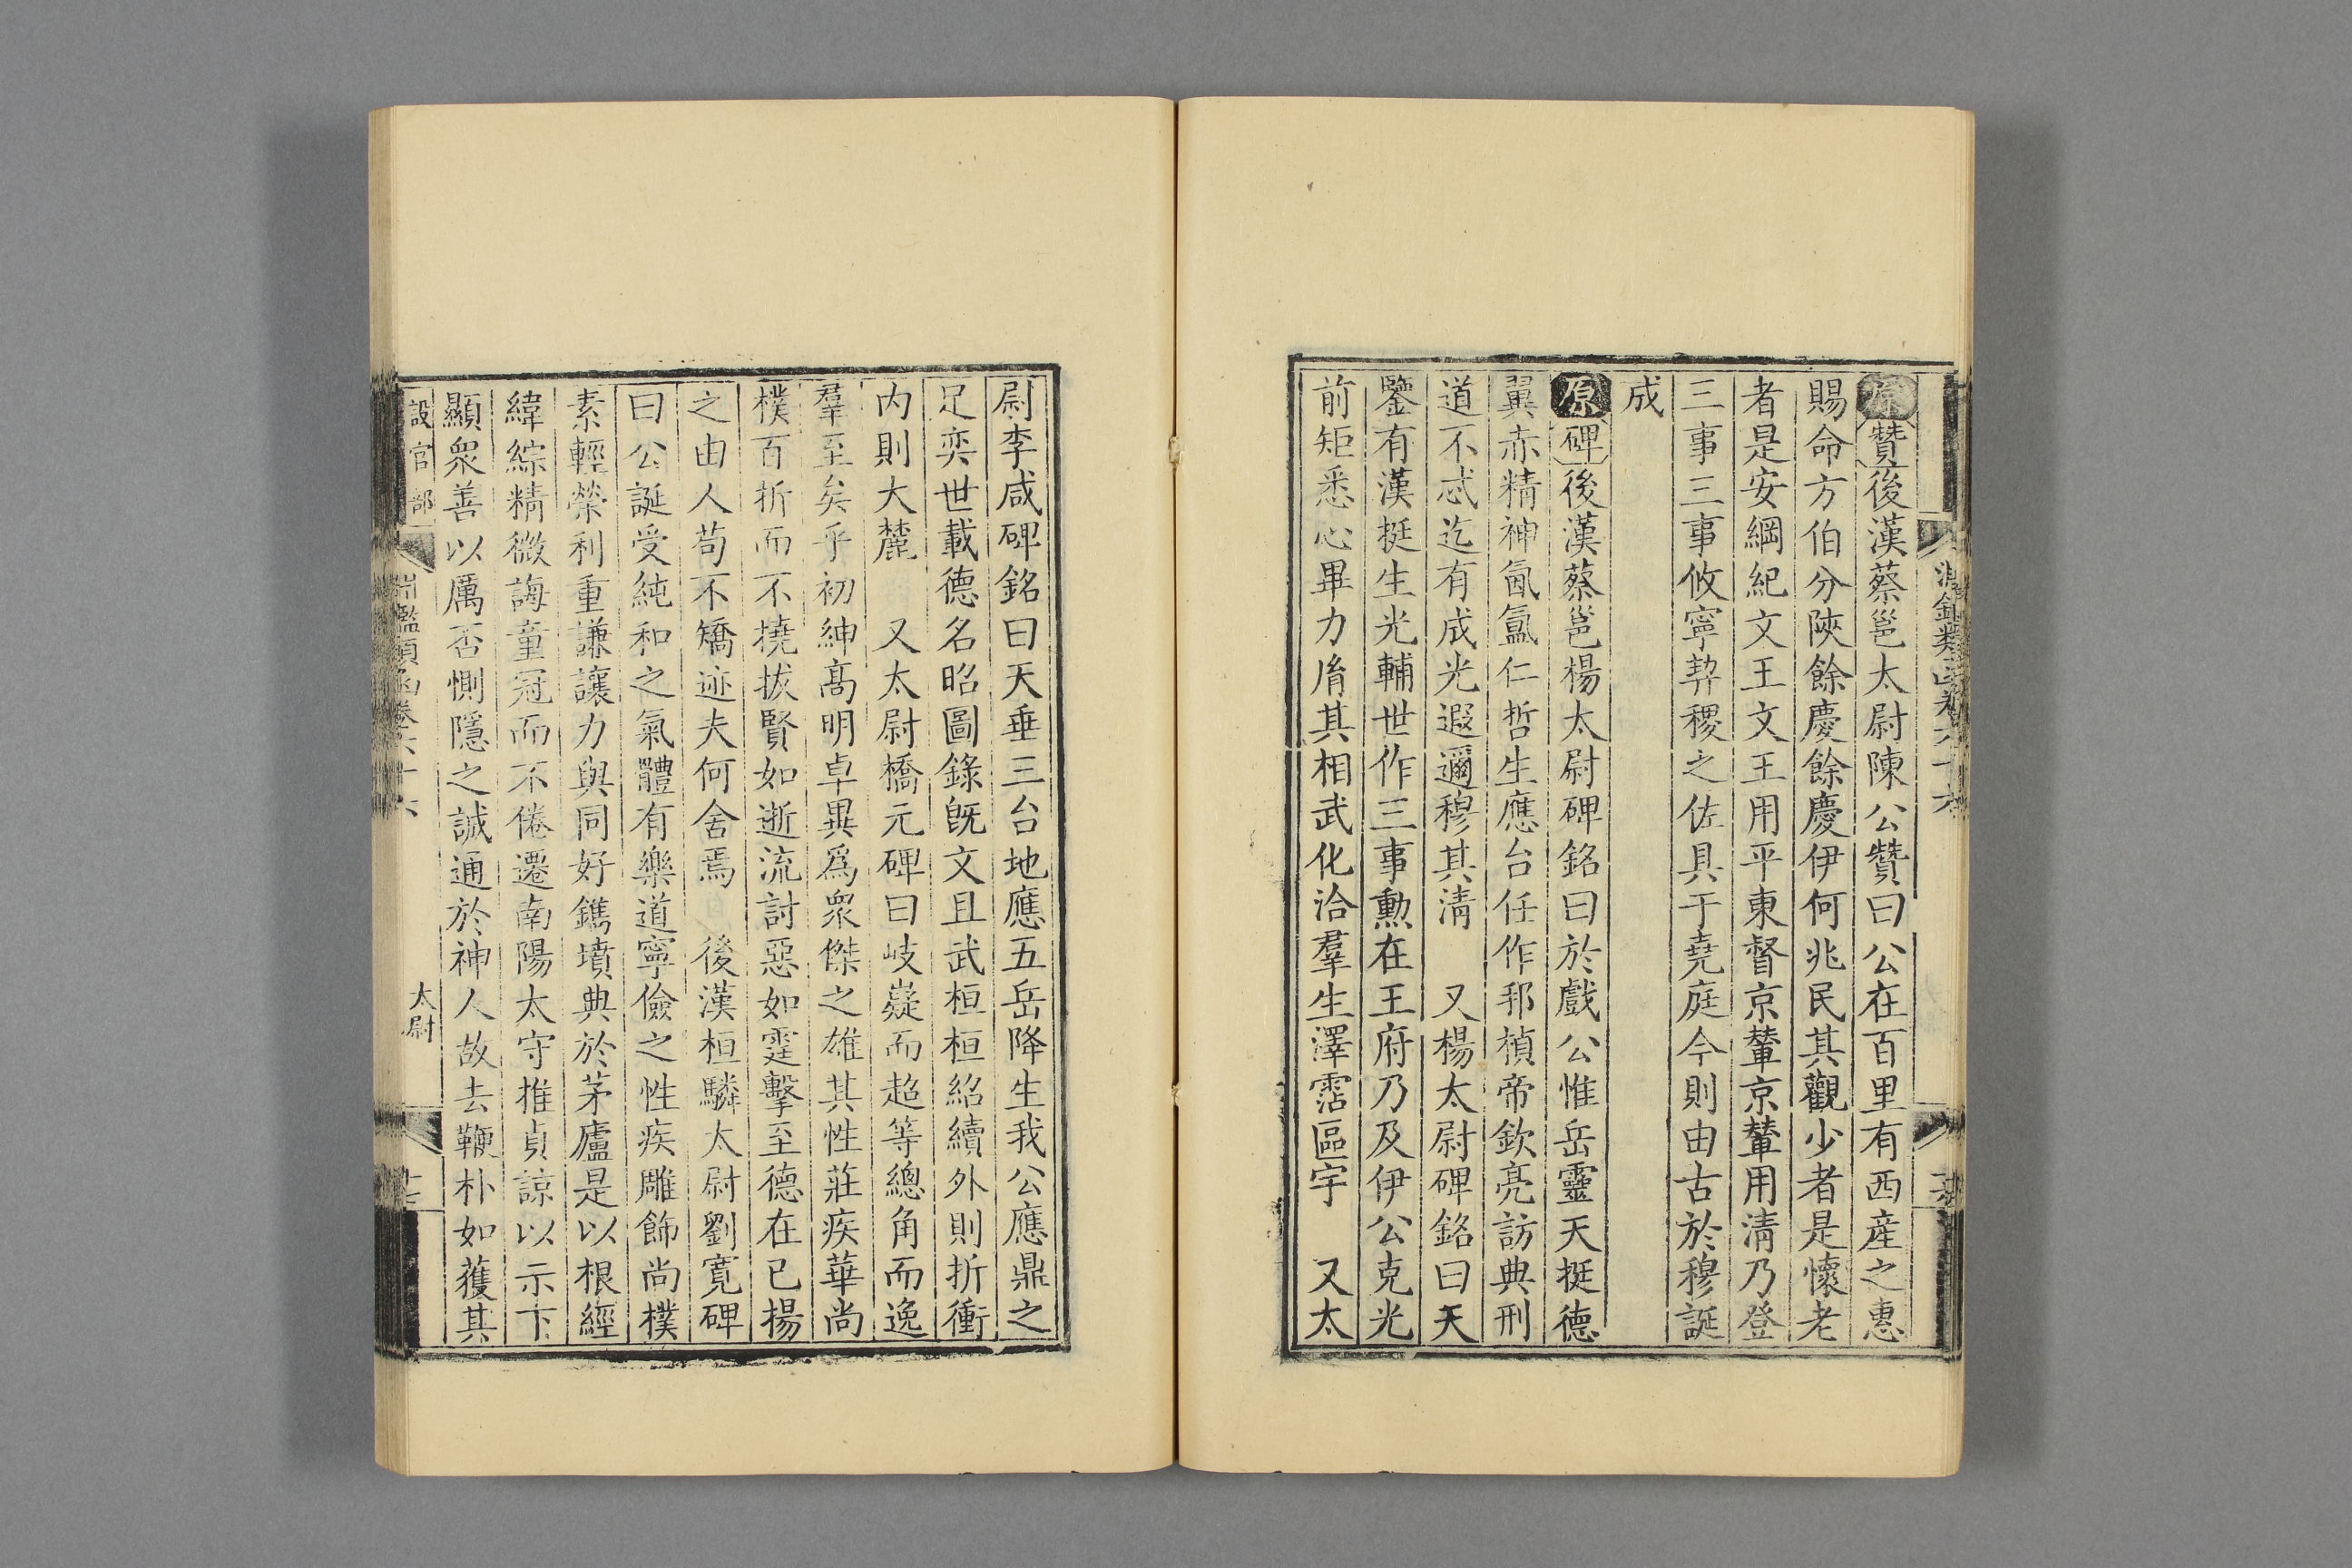 原贊後漢蔡邕太尉陳公贊曰公在百里有西産之惠
賜命方伯分陝餘慶餘慶伊何兆民其觀少者是懷老
者是安綱紀文王文王用平東督京輦京輦用清乃登
三事三事攸寧契稷之佐具于堯庭今則由古於穆誕
成
原碑後漢蔡邕楊太尉碑銘曰於戲公惟岳靈天挺德
翼赤精神氤氳仁哲生應台任作邦楨帝欽亮訪典刑
道不忒迄有成光遐邇穆其清　又楊太尉碑銘曰天
鑒有漢挺生光輔世作三事勲在王府乃及伊公克光
前矩悉心畢力胥其相武化洽羣生澤霑區宇　又太
尉李咸碑銘曰天垂三台地應五岳降生我公應鼎之
足奕世載德名昭圖錄旣文且武桓桓紹續外則折衝
内則大麓　又太尉橋元碑曰岐嶷而超等總角而逸
羣至矣乎初紳髙明卓異爲衆傑之雄其性莊疾華尚
樸百折而不撓拔賢如逝流討惡如霆擊至德在已揚
之由人苟不矯迹夫何舍焉　後漢桓驎太尉劉寬碑
曰公誕受純和之氣體有樂道寧儉之性疾雕飾尚樸
素輕榮利重謙讓力與同好鐫墳典於茅廬是以根經
緯綜精微誨童冠而不倦遷南陽太守推貞諒以示下
顯衆善以厲否惻隱之誠通於神人故去鞭朴如獲其
設官部　淵鑑類函卷六十六　太尉